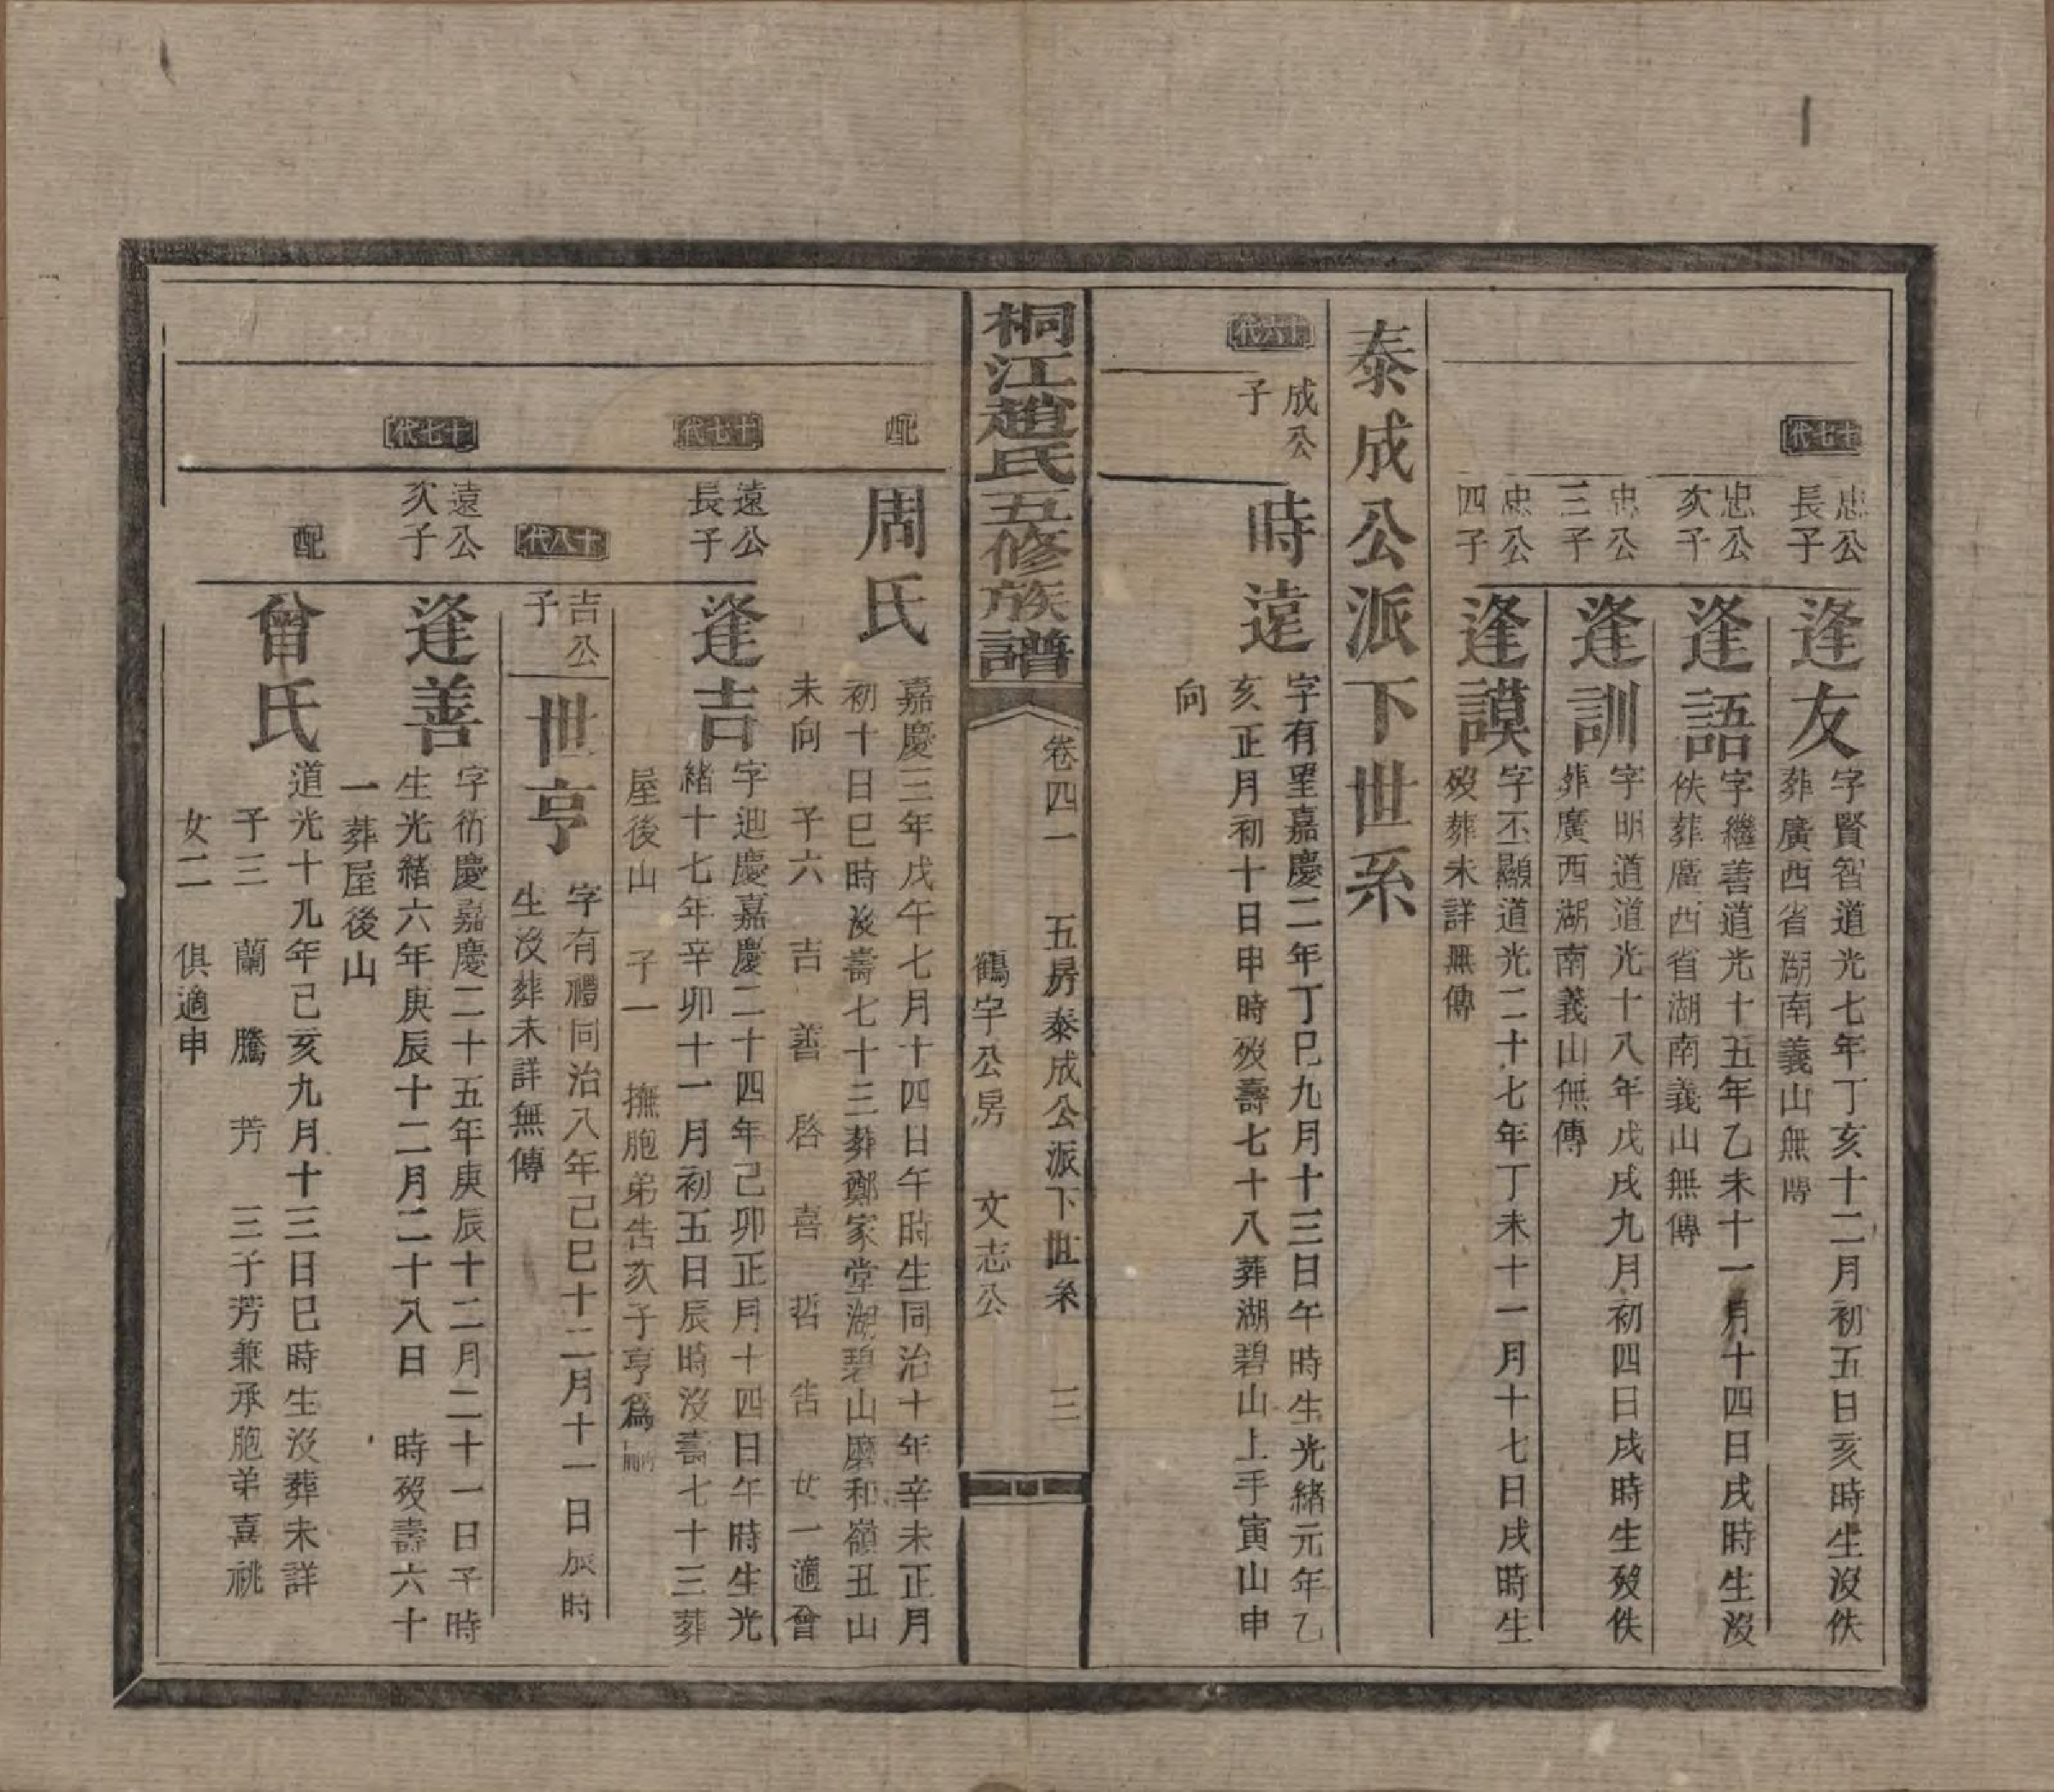 十七代
忠公
長子
逢友
字賢智道光七年丁亥十二月初五日亥時生沒佚
葬廣西省湖南義山無傳
忠公
次子
逢語
字繼善道光十五年乙未十一月十四日戌時生沒
佚葬廣西省湖南義山無傳
忠公
三子
逢訓
字明道道光十八年戊戌九月初四日戌時生歿佚
葬廣西湖南義山無傳
忠公
四子
逢謨
字丕顯道光二十七年丁未十一月十七日戌時生
歿葬未詳無傳
泰成公派下世系
十六代
成公
子
時遠
字有望嘉慶二年丁巳九月十三日午時生光緒元年乙
亥正月初十日申時歿壽七十八葬湖碧山上手寅山申
向
桐江趙氏五修族譜
卷四一 五房泰成公派下世系 三
鶴宇公房 文志公
配
周氏
嘉慶三年戊午七月十四日午時生同治十年辛未正月
初十日巳時沒壽七十三葬鄭家堂湖碧山磨和嶺丑山
未向 子六 吉 善 啓 喜 哲 吿 女一適曾
十七代
遠公
長子
逢吉
字迪慶嘉慶二十四年己卯正月十四日午時生光
緒十七年辛卯十一月初五日辰時沒壽七十三葬
屋後山 子一 撫胞弟吿次子亨爲嗣
十八代
吉公
子
世亨
字有禮同治八年己巳十二月十一日辰時
生沒葬未詳無傳
十七代
遠公
次子
逢善
字衍慶嘉慶二十五年庚辰十二月二十一日子時
生光緒六年庚辰十二月二十八日 時歿壽六十
一葬屋後山
配
曾氏
道光十九年己亥九月十三日巳時生沒葬未詳
子三 蘭 騰 芳 三子芳兼承胞弟喜祧
女二 俱適申